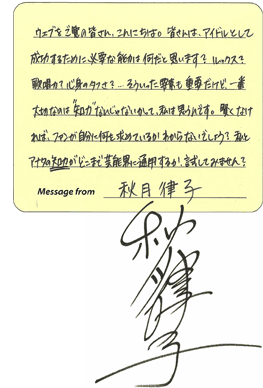 ウェブをご覧の皆さん、こんにちは。皆さんは、アイドルとして
成功するために必要な能力は何だと思います？ルックス？
歌唱力？心身のタフさ？…そういった要素も重要だけど、一番
大切なのは"知力"なんじゃないかって、私は思うんです。賢くなけ
れば、ファンが自分に何を求めているかわからないでしょう？私と
アナタの知力がどこまで芸能界に通用するか、試してみません？
Message from 秋月律子
秋月律子